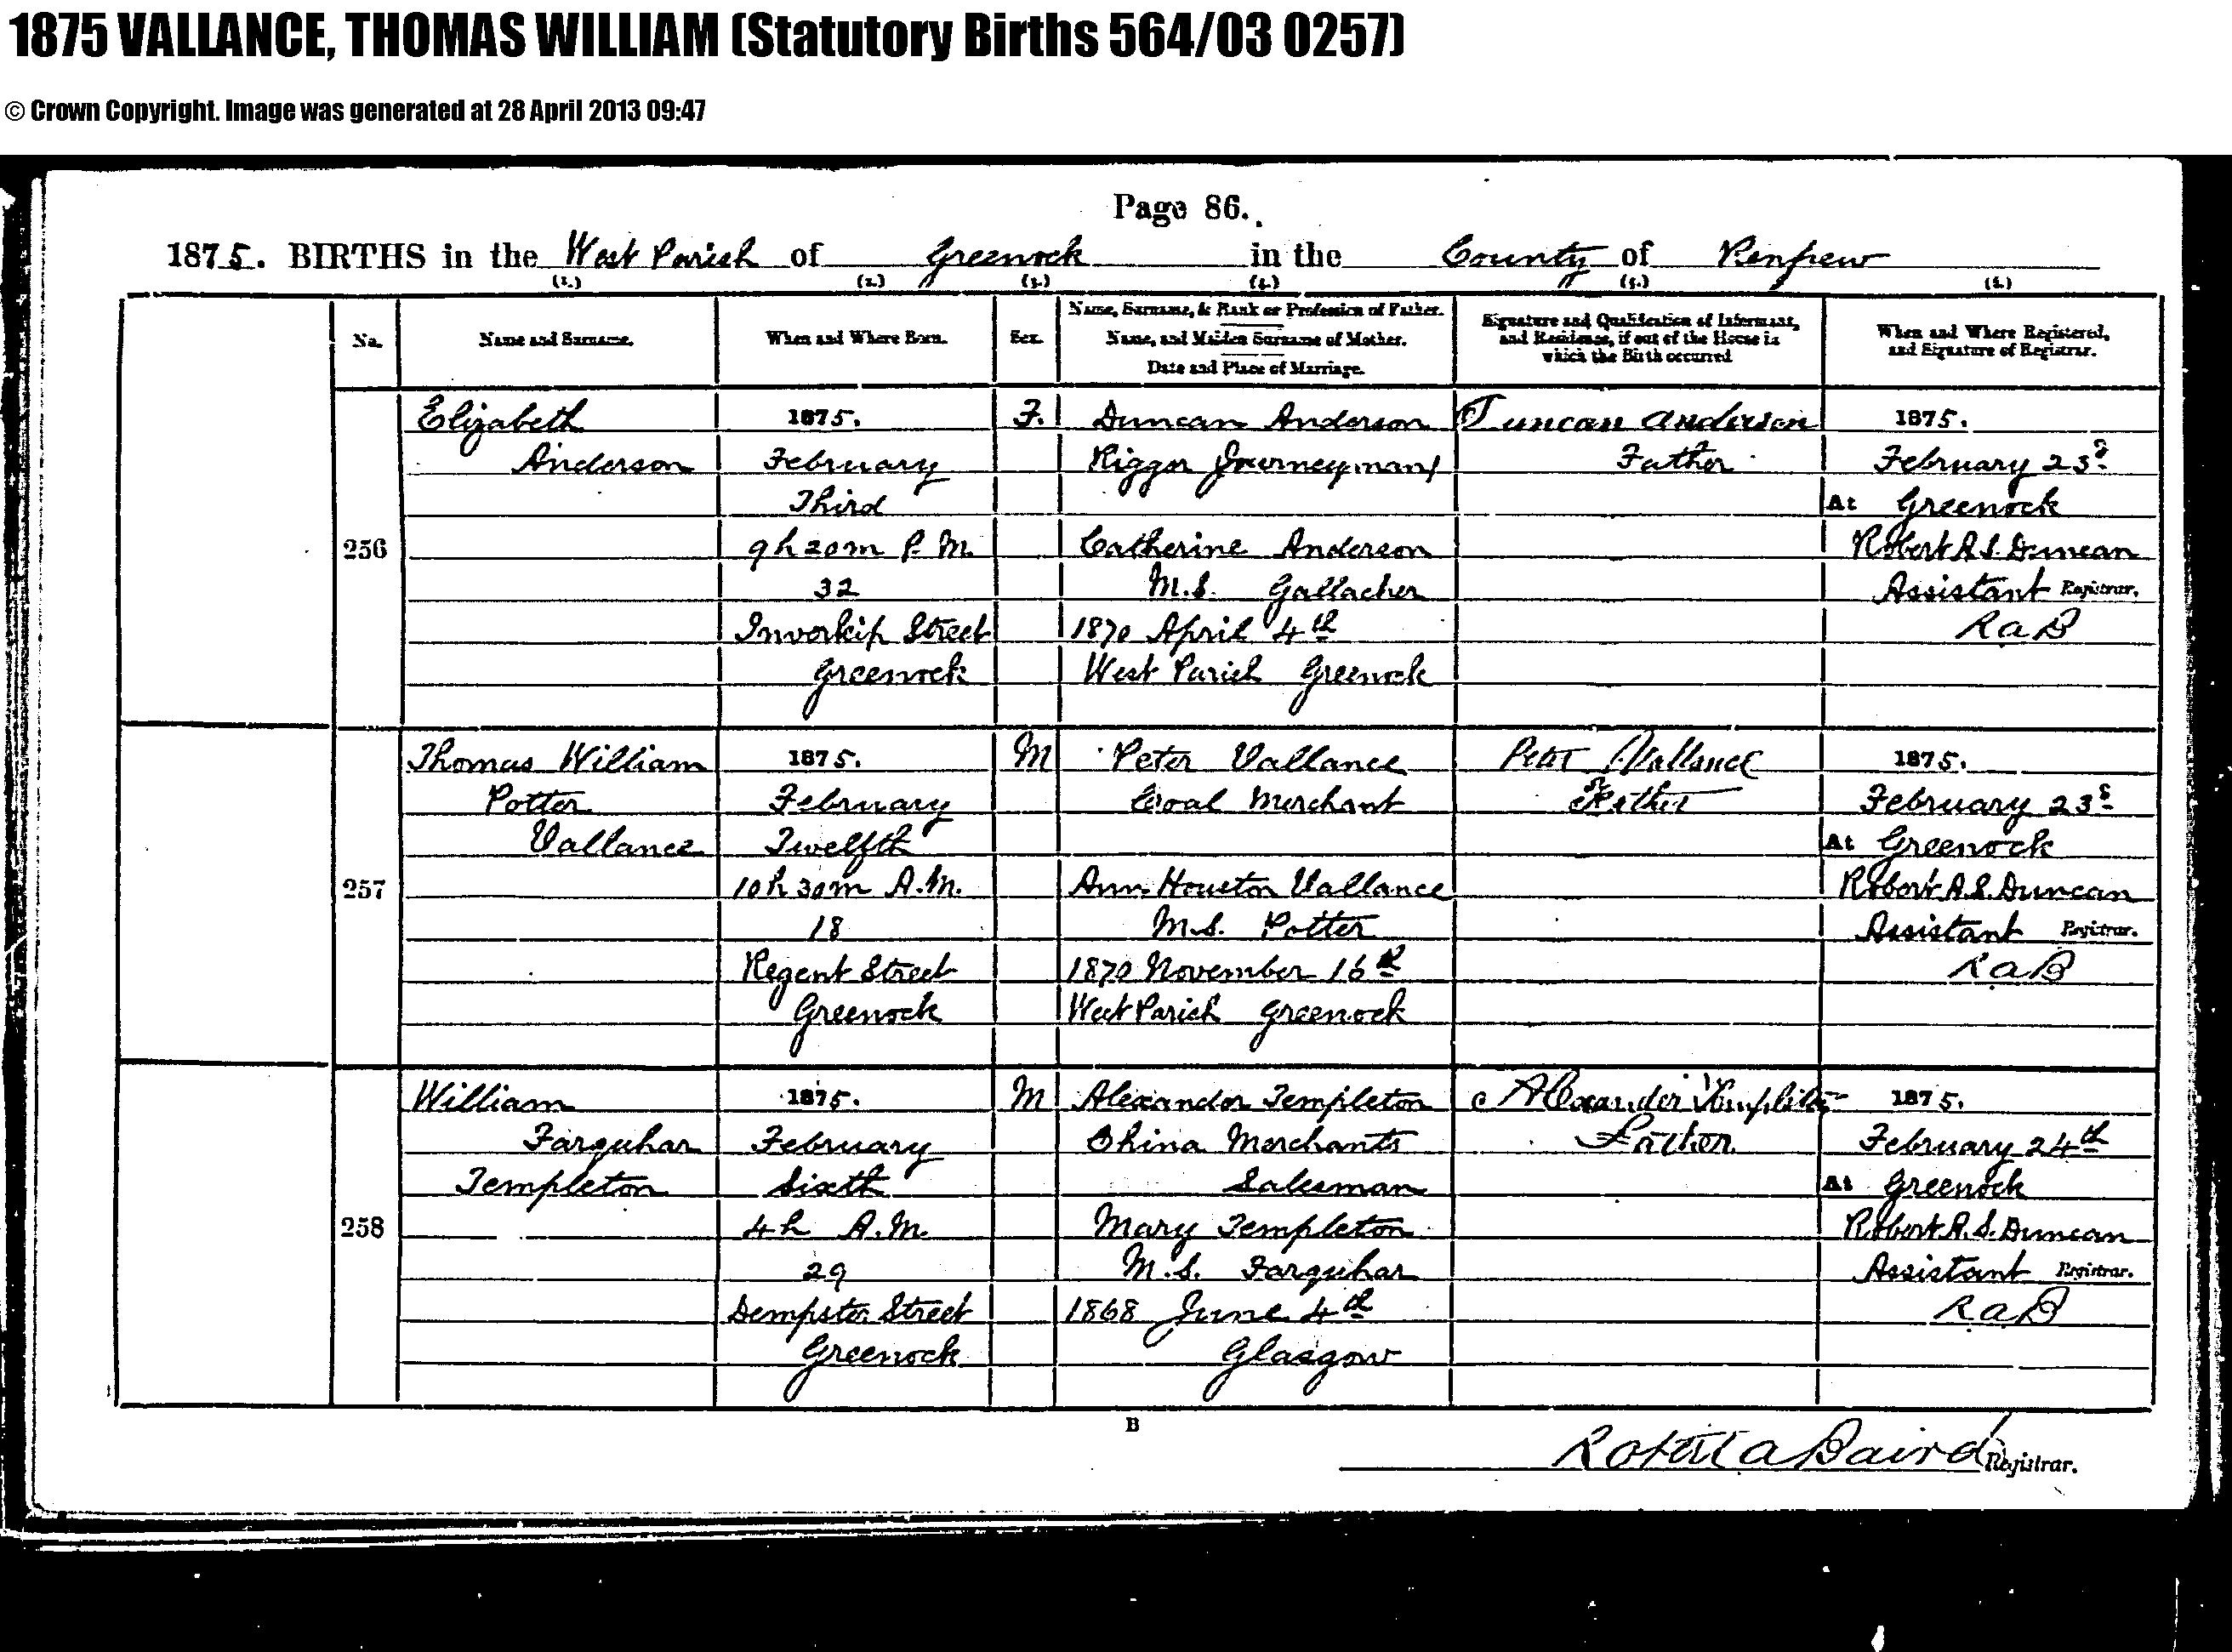 1875 VALLANCE, THOMAS WILLIAM (Statutory Births 564/03 0257)
© Crown Copyright. Image was generated at 28 April 2013 09:47
Page 86.
1875. BIRTHS in the West Parish of Greenock in the County of Renfrew
(1.) (2.) (3.) (4.) (5.) (6.)
No.
Name and Surname.
When and Where Born.
Sex.
Name, Surname, & Rank or Profession of Father.
Name, and Maiden Surname of Mother.
Date and Place of Marriage.
Signature and Qualification of Informant,
and Residence, if out of the House in
which the Birth occurred
When and Where Registered,
and Signature of Registrar.
256
Elizabeth
Anderson
1875.
February
Third
9h 20m P. M.
32
Inverkip Street
Greenock
F.
Duncan Anderson
Rigger Journeyman
Catherine Anderson
M.S. Gallacher
1870 April 4th
West Parish Greenock
Duncan Anderson
Father
1875.
February 23d
At Greenock
Robert A. S. Duncan
Assistant Registrar.
R a B
257
Thomas William
Potter
Vallance
1875.
February
Twelfth
10h 30m A.M.
18
Regent Street
Greenock
M
Peter Vallance
Coal Merchant
Ann Houston Vallance
M.S. Potter
1870 November 16th
West Parish Greenock
Peter Vallance
Father
1875.
February 23d
At Greenock
Robert A. S. Duncan
Assistant Registrar.
R a B
258
William
Farquhar
Templeton
1875.
February
Sixth
4h A.M.
29
Dempster Street
Greenock
M
Alexander Templeton
China Merchants
Salesman
Mary Templeton
M.S. Farquhar
1868 June 4th
Glasgow
Alexander Templeton
Father
1875.
February 24th
At Greenock
Robert A. S. Duncan
Assistant Registrar.
R a B
B
Robert A Baird Registrar.